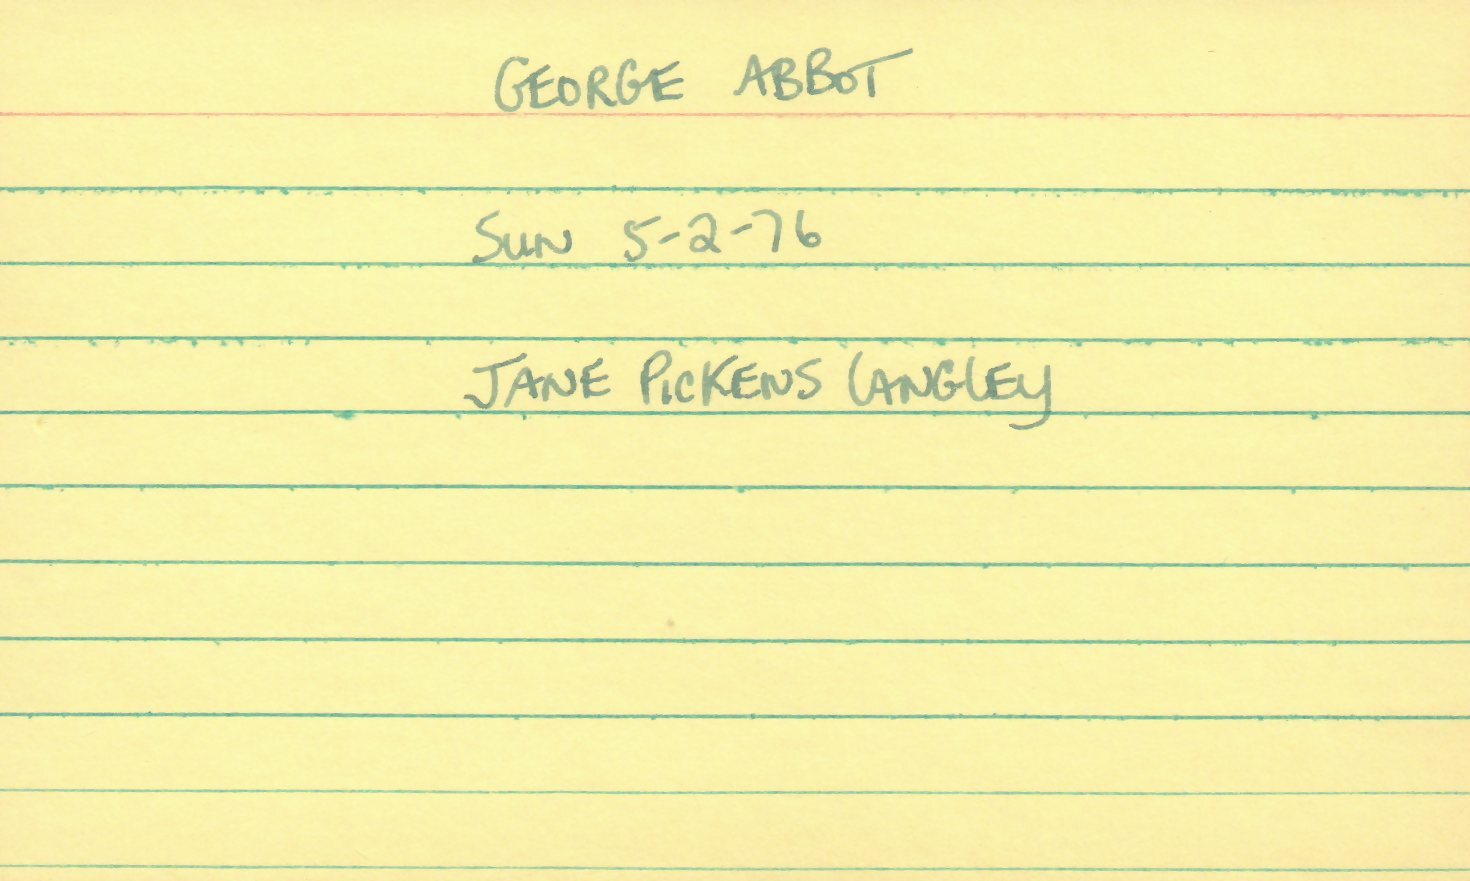 GEORGE ABBOT
SUN 5-2-76
JANE PICKENS LANGLEY